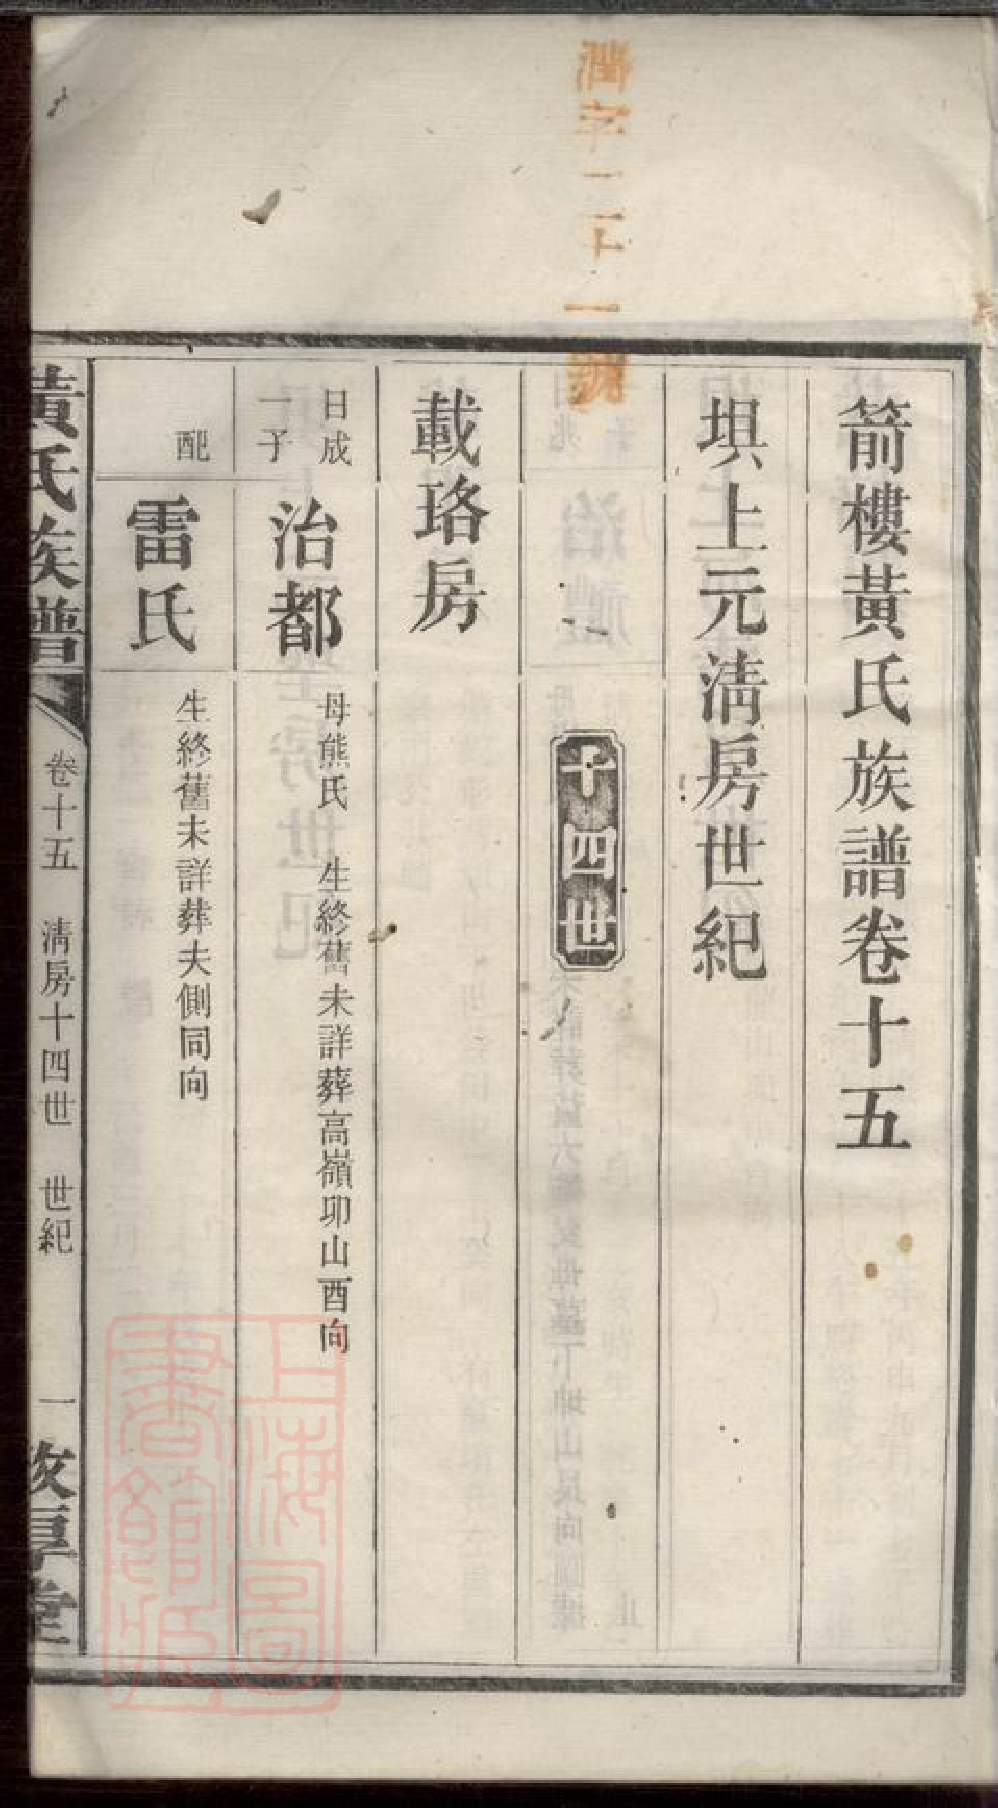 箭樓黃氏族譜卷十五
垻上元淸房世紀
十四世
載珞房
日成
一子
治都
母熊氏 生終舊未詳葬高嶺卯山酉向
配
雷氏
生終舊未詳葬夫側同向
黃氏族譜
卷十五 淸房十四世 世紀
一
敦厚堂
字二十一號
上海圖書館藏